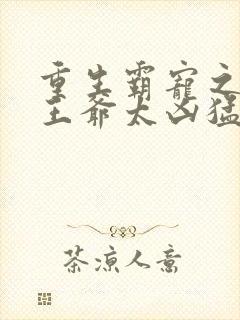 重生霸寵之
王爺太凶猛
茶凉人意